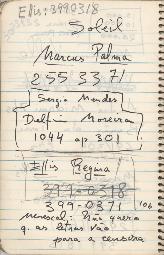 Ellis: 3990318
Soleil
Marcus Palma
255 33 71
Sergio Mendes
Delfim Moreira
1044 ap 301
Ellis Regina
399-0318
399-0371
menescal: Não quero
q. as letras vão
para a censura